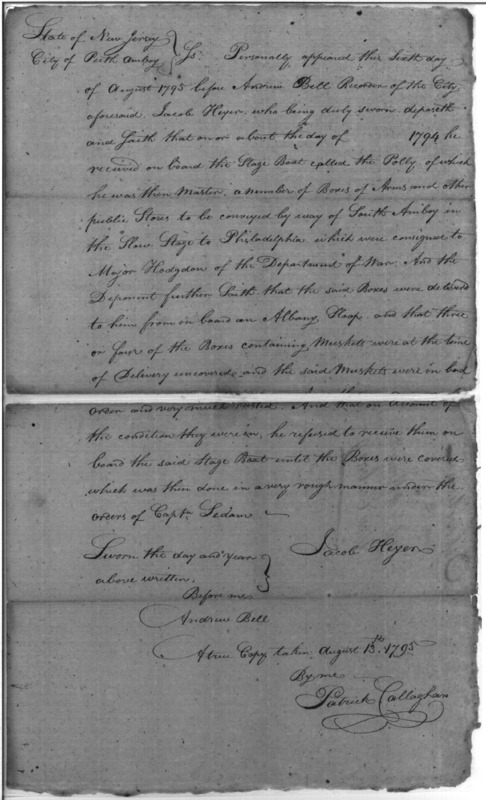 State of New Jersey
City of Perth Amboy } Ss. Personally appeared this Sixth day
of August 1795 before Andrew Bell Recorder of the City
aforesaid, Jacob Heyer, who being duly sworn deposeth
and saith that on or about the day of 1794 he
received on board the Stage Boat called the Polly of which
he was then Master, a number of Boxes of Arms and other
public Stores to be conveyed by way of South Amboy in
the Slow Stage to Philadelphia which were consigned to
Major Hodgdon of the Department of War. And the
Deponent further Saith that the said Boxes were delivered
to him from on board an Albany Sloop, and that three
or four of the Boxes containing Muskets were at the time
of Delivery uncovered and the said Muskets were in bad
order and very much rusted. And that on Account of
the condition they were in, he refused to receive them on
board the said Stage Boat until the Boxes were covered
which was then done in a very rough manner under the
orders of Capt. Sedam
Sworn the day and year } Jacob Heyer
above written,
Before me
Andrew Bell
A true Copy taken August 13th. 1795
By me
Patrick Callaghan